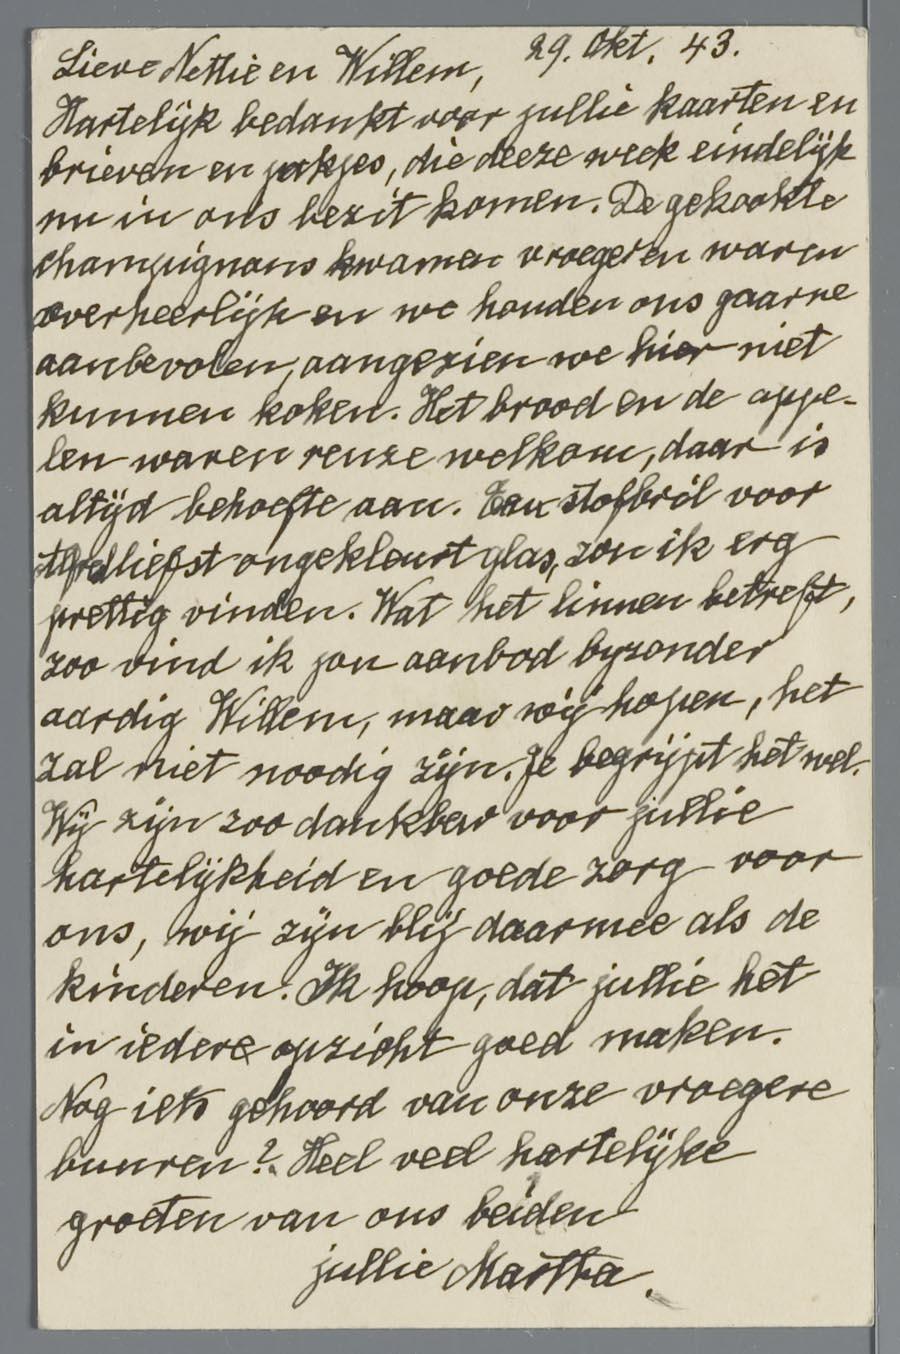 Lieve Nettie en Willem, 29. Okt. 43.
Hartelijk bedankt voor jullie kaarten en
brieven en pakjes, die deeze week eindelijk
nu in ons bezit komen. De gekookte
champignons kwamen vroeger en waren
overheerlijk en we houden ons gaarne
aanbevolen, aangezien we hier niet
kunnen koken. Het brood en de appe-
len waren renze welkom, daar is
altijd behoefte aan. Een stofbril voor
liefst ongekleurt glas, zou ik erg
prettig vinden. Wat het linnen betreft,
zoo vind ik jou aanbod byzonder
aardig Willem, maar wij hopen, het
zal niet noodig zijn. Je begrijpt het wel.
Wij zijn zoo dankbar voor jullie
hartelijkheid en goede zorg voor
ons, wij zijn blij daarmee als de
kinderen. Ik hoop, dat jullie het
in iedere opzicht goed maken.
Nog iets gehoord van onze vroegere
buuren? Heel veel hartelijke
groeten van ons beiden
jullie Martha.